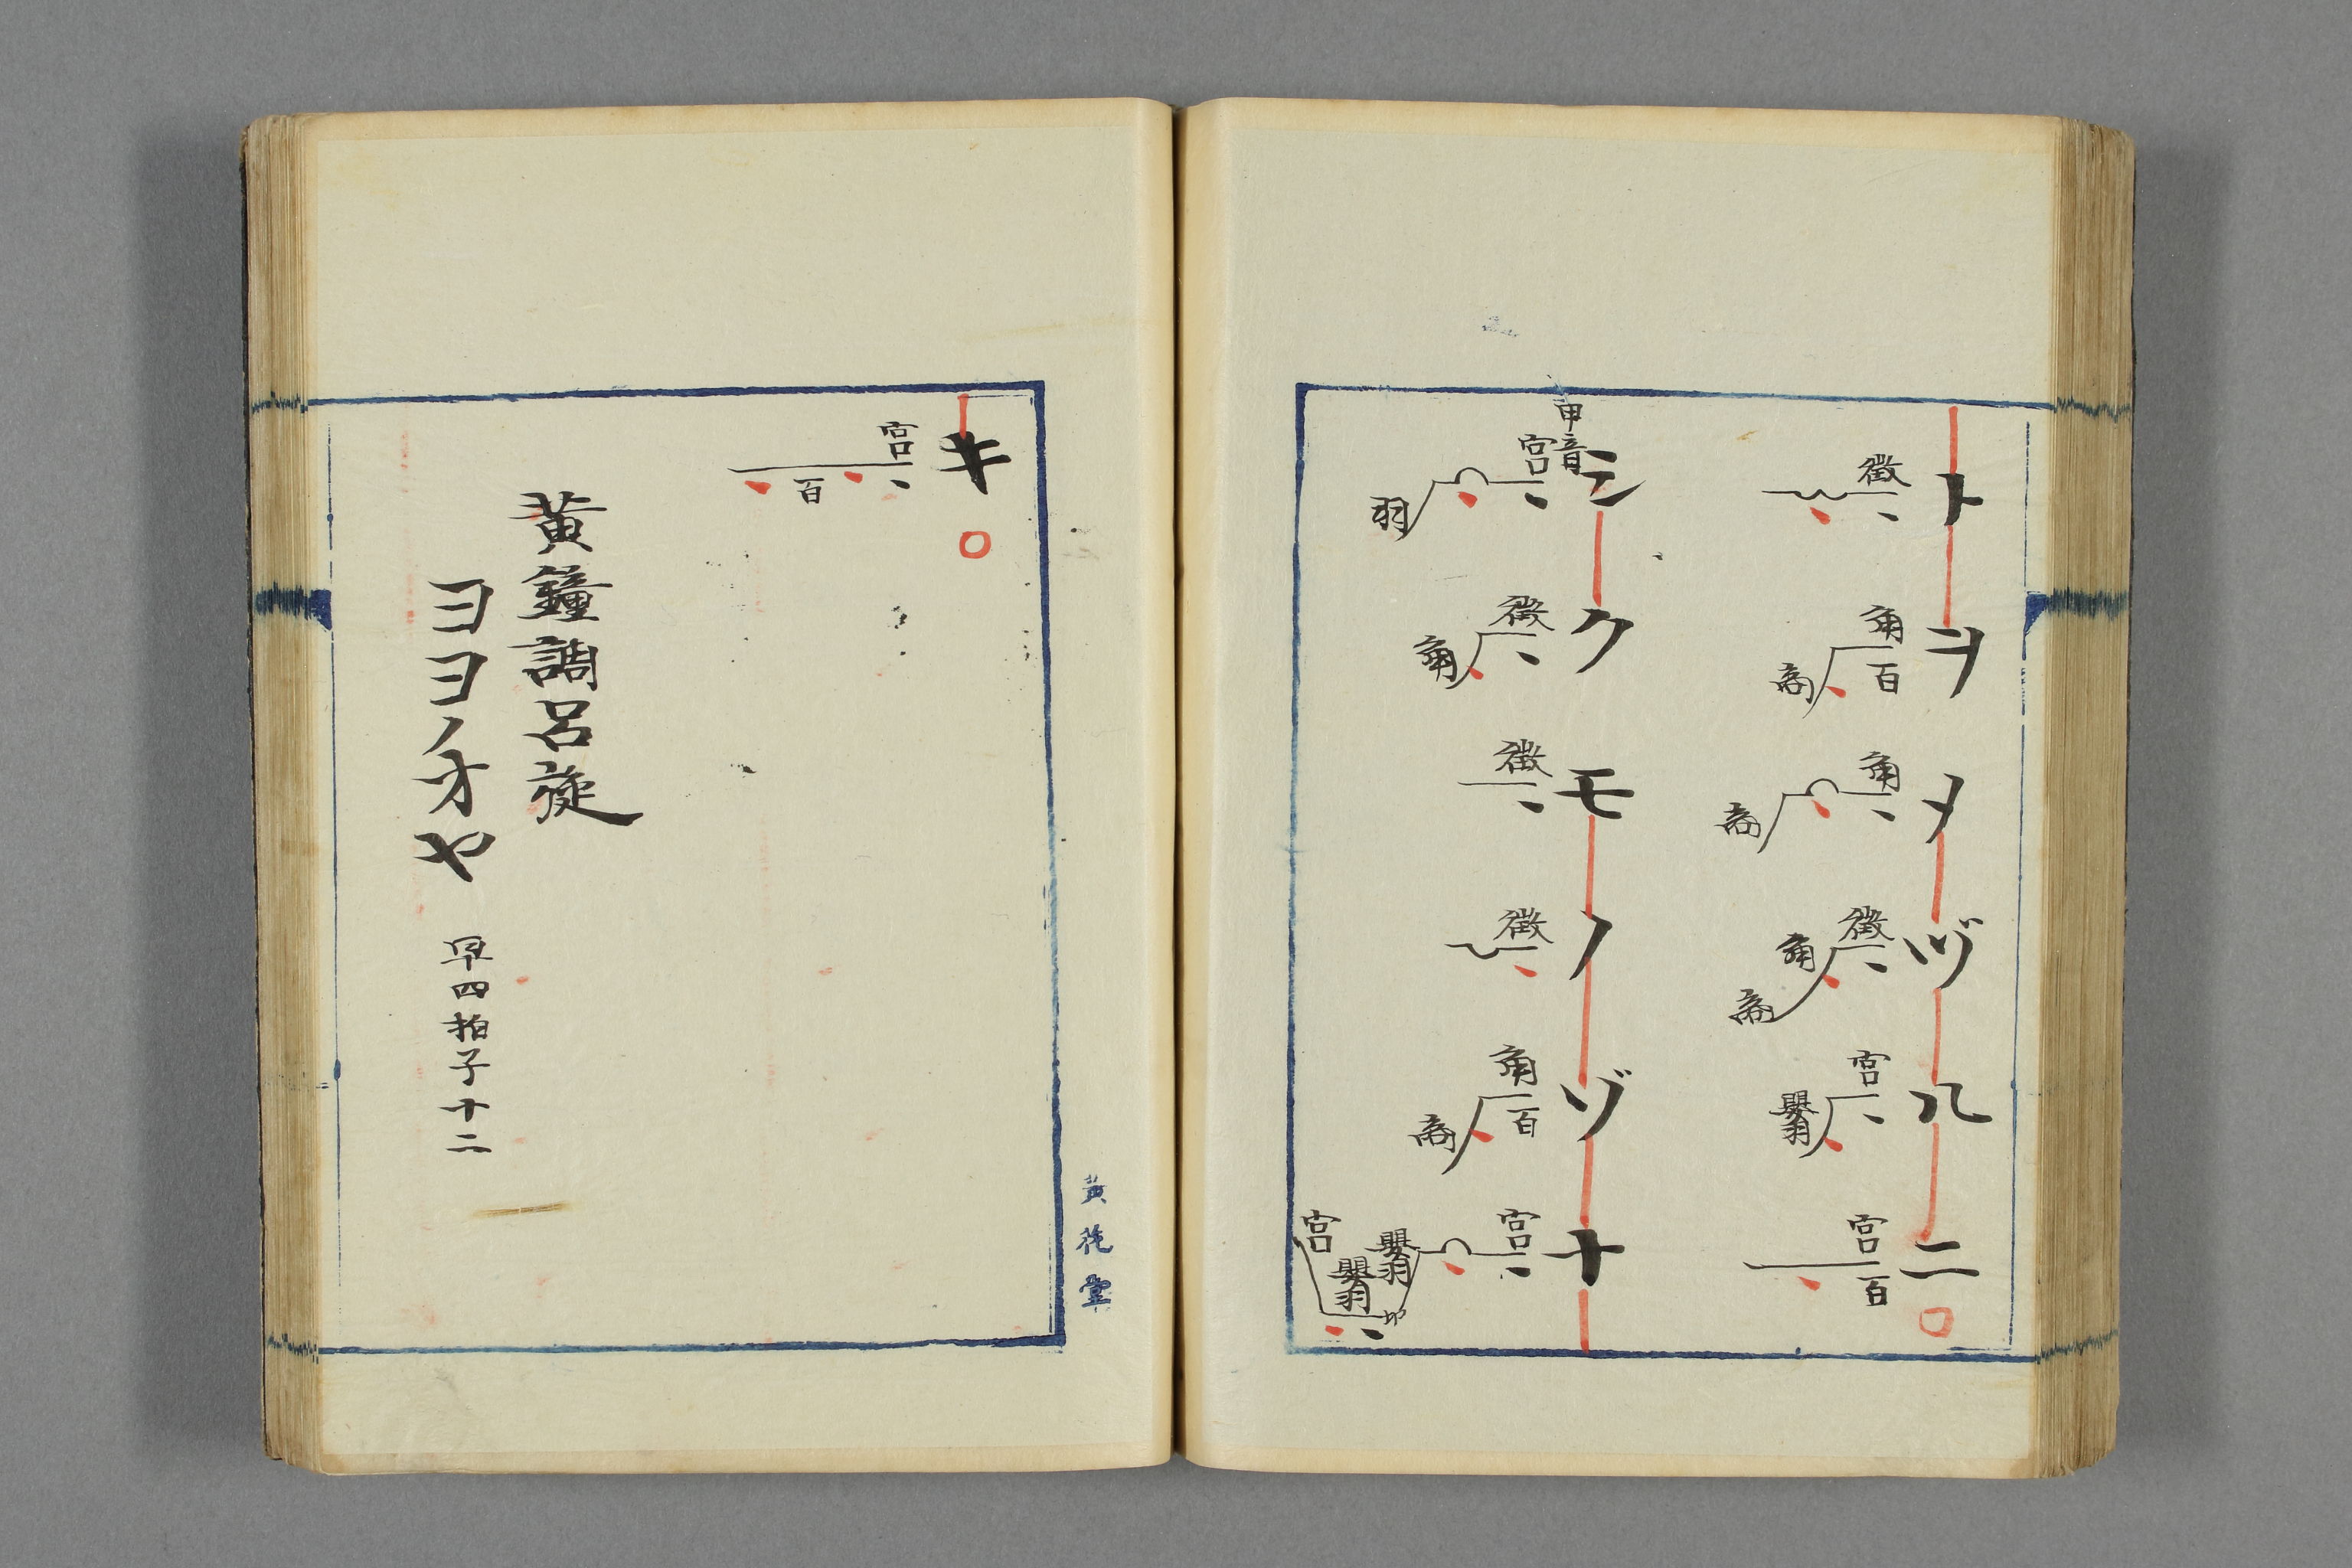 トヲメヅルニ
徴 角 百 商 角 商 徴 角 商 宮 嬰羽 宮 百
甲音
シクモノゾナ
宮 羽 徴 角 徴 徴 角 百 商 宮 嬰羽 嬰羽 宮
キ
宮 百
黄鐘調呂旋
ヨヨノオヤ 早四拍子十二